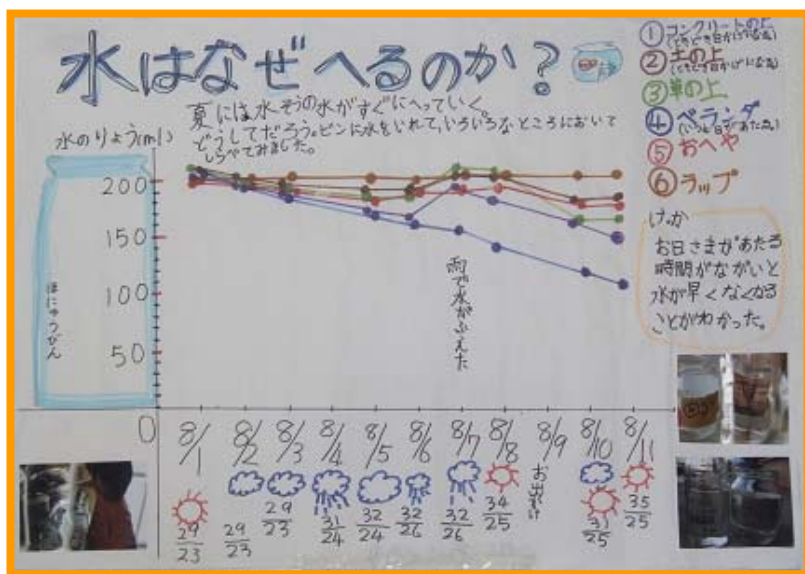 水はなぜへるのか?
夏には水そうの水がすぐにへっていく。
どうしてだろう。ビンに水をいれて、いろいろなところにおいて
しらべてみました。
① コンクリートの上
(ときどき日かげになる)
② 土の上
(ときどき日かげになる)
③ 草の上
④ ベランダ
⑤ おへや
⑥ ラップ
けっか
お日さまがあたる
時間がながいと
水が早くなくなる
ことがわかった。
水のりょう(ml)
200
150
100
50
0
ほにゅうびん
雨で水がふえた
8/1 8/2 8/3 8/4 8/5 8/6 8/7 8/8 8/9 8/10 8/11
お出かけ
29/23 29/23 29/23 31/24 32/24 32/26 32/26 34/25 31/25 35/25